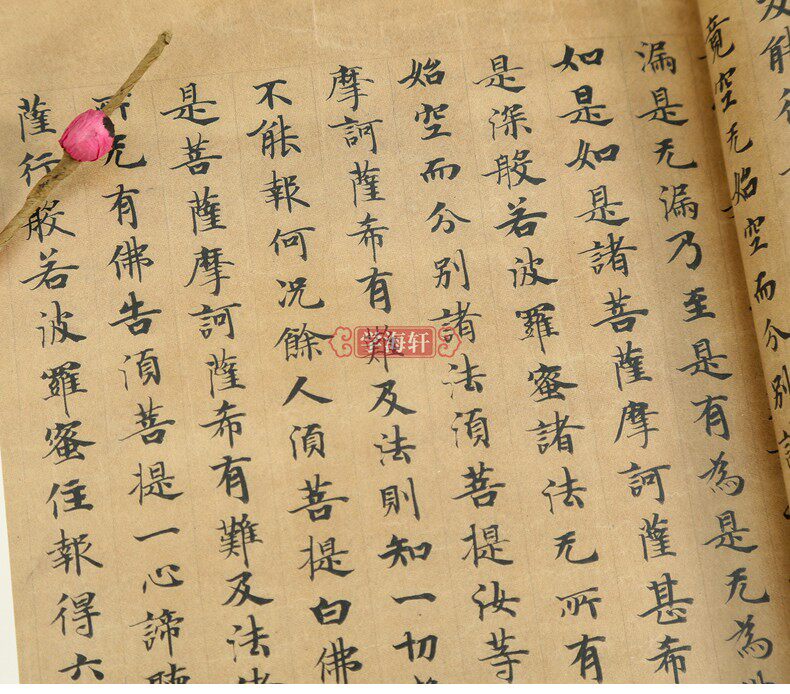 能行
竟空无始空而分别
漏是无漏乃至是有為是无為
如是如是諸菩薩摩訶薩甚希
是深般若波羅蜜諸法无所有
始空而分别諸法須菩提汝等
摩訶薩希有難及法則知一切
不能報何况餘人須菩提白佛
是菩薩摩訶薩希有難及法
所无有佛告須菩提一心諦聽
薩行般若波羅蜜住報得六
学海轩